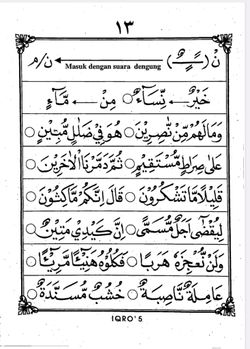 ١٣
نْ (ـًـٍـٌ) ← Masuk dengan suara dengung ← ن / م
خَيْرٌ ← نِسَاءٌ مِنْ ← مَاءٍ
وَمَا لَهُمْ مِّنْ نّٰصِرِيْنَ ○ هُوَ فِيْ ضَلٰلٍ مُّبِيْنٍ ○
عَلٰى صِرَاطٍ مُّسْتَقِيْمٍ ○ ثُمَّ دَمَّرْنَا الْاٰخَرِيْنَ ○
قَلِيْلًا مَّا تَشْكُرُوْنَ ○ قَالَ اِنَّكُمْ مَّاكِثُوْنَ ○
لِيُقْضٰى اَجَلٌ مُّسَمًّى ○ اِنَّ كَيْدِيْ مَتِيْنٌ ○
وَلَنْ نُّعْجِزَهٗ هَرَبًا ○ فَكُلُوْهُ هَنِيْۤئًا مَّرِيْۤئًا ○
عَامِلَةٌ نَّاصِبَةٌ ○ خُشُبٌ مُّسَنَّدَةٌ ○
IQRO' 5